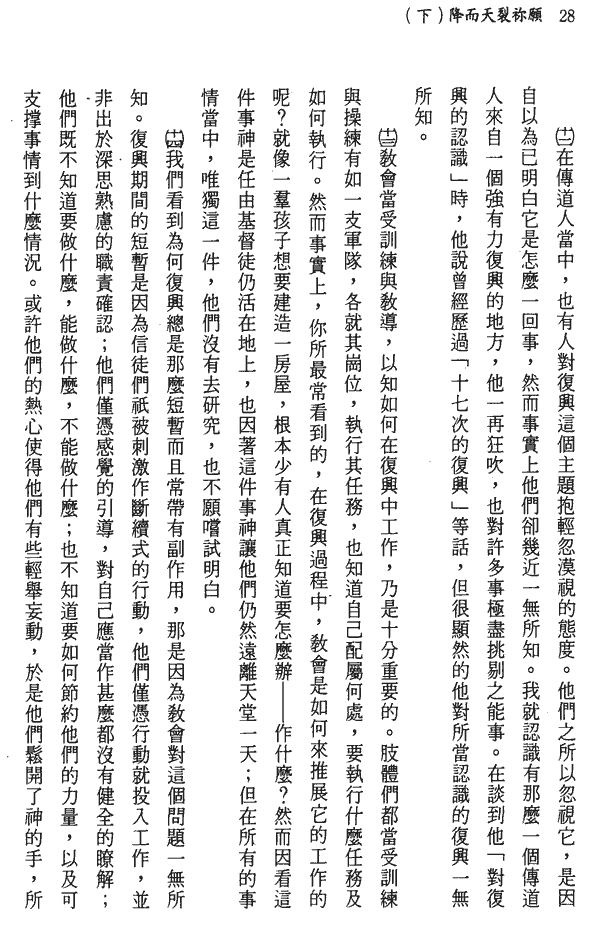 28　願祢裂天而降（下）
㈫在傳道人當中，也有人對復興這個主題抱輕忽漠視的態度。他們之所以忽視它，是因
自以為已明白它是怎麼一回事，然而事實上他們卻幾近一無所知。我就認識有那麼一個傳道
人來自一個強有力復興的地方，他一再狂吹，也對許多事極盡挑剔之能事。在談到他「對復
興的認識」時，他說曾經歷過「十七次的復興」等話，但很顯然的他對所當認識的復興一無
所知。
教會當受訓練與教導，以知如何在復興中工作，乃是十分重要的。肢體們都當受訓練
與操練有如一支軍隊，各就其崗位，執行其任務，也知道自己配屬何處，要執行什麼任務及
如何執行。然而事實上，你所最常看到的，在復興過程中，教會是如何來推展它的工作的
呢？就像一羣孩子想要建造一房屋，根本少有人真正知道要怎麼辦——作什麼？然而因看這
件事神是任由基督徒仍活在地上，也因著這件事神讓他們仍然遠離天堂一天；但在所有的事
情當中，唯獨這一件，他們沒有去研究，也不願嚐試明白。
我們看到為何復興總是那麼短暫而且常帶有副作用，那是因為教會對這個問題一無所
知。復興期間的短暫是因為信徒們祇被刺激作斷續式的行動，他們僅憑行動就投入工作，並
非出於深思熟慮的職責確認；他們僅憑感覺的引導，對自己應當作甚麼都沒有健全的瞭解；
他們既不知道要做什麼，能做什麼，不能做什麼；也不知道要如何節約他們的力量，以及可
支撐事情到什麼情況。或許他們的熱心使得他們有些輕舉妄動，於是他們鬆開了神的手，所